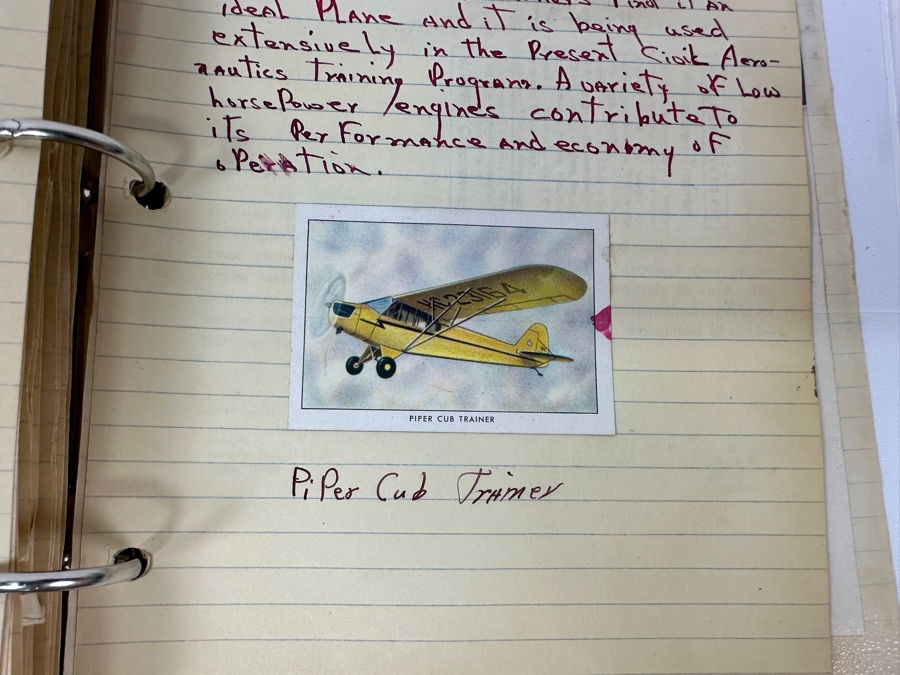 ideal PLANE and it is being used
extensively in the Present Civil Aero-
nautics Training Program. A variety of Low
horsePower engines contribute To
iTs PerFormance and economy of
oPeration.
NC23164
PIPER CUB TRAINER
PiPer Cub Trainer